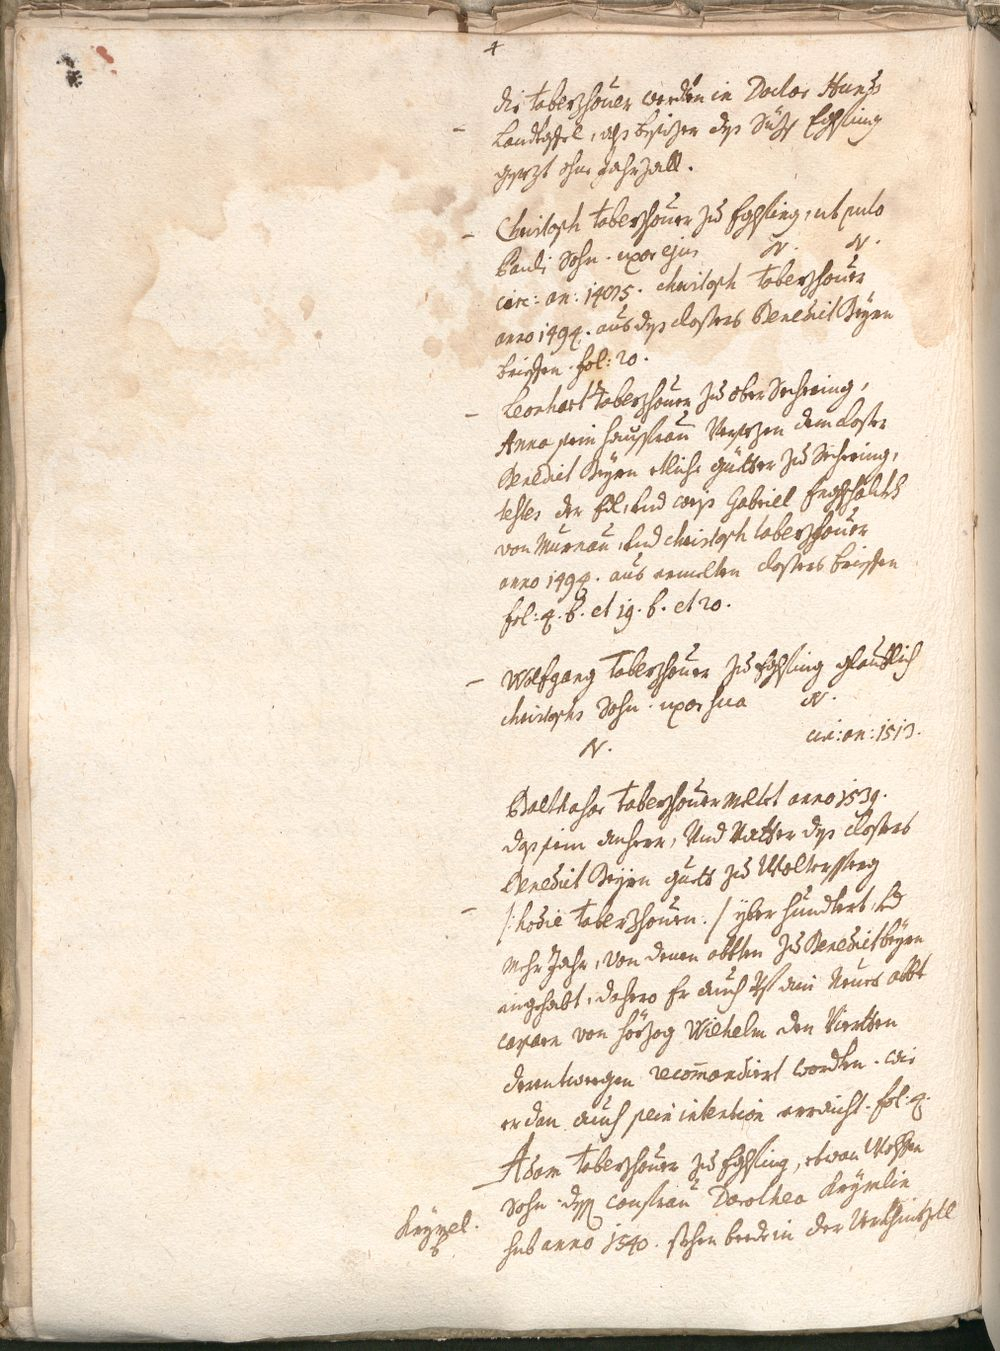 4
die taberzhouer werden in Doctor Hunds
Landtafel, als besizer des Süz Eghling
gesezt ohne Jahrzall.
Christoph taberzhouer zu Eghling, ut puto
Pauls Sohn. uxor ejus N. N.
circ: an: 1475. christoph taberzhouer
anno 1494. aus des closters Benedict Beyrn
brieffen. fol: 20.
Leonhart taberzhouer zu ober Seehring,
Anna sein hausfrau versezen dem closter
Benedict Beyrn etliche gütter zu Seehring,
testes der Edl, und weis Gabriel
von Murnau, und christoph taberzhouer
anno 1494. aus ermelten closters brieffen
fol: 4. b. et 19. b. et 20.
Wolfgang taberzhouer zu Eghling glaublich
christophs Sohn. uxor sua N.
N. circ: an: 1513.
Balthasar taberzhouer meldet anno 1539.
das sein anherr, und Vatter des closters
Benedict Beyrn guett zu Woltersperg
/: hodie taberzhouen. / yber hundert, und
mehr Jahr, von denen abbten zu Benedictbeyrn
ingehabt, dahero Er auch dem Neuen abbt
casparn von Hörzog Wilhelm den Viertten
derentwegen recom̄andiert worden. wie
er dan auch sein intention erraicht. fol: 4.
Adam taberzhouer zu Eghling, etwan
Sohn. dess. confrau Dorothea Krymlin
sub anno 1540. stehen beede in der
Krymel.